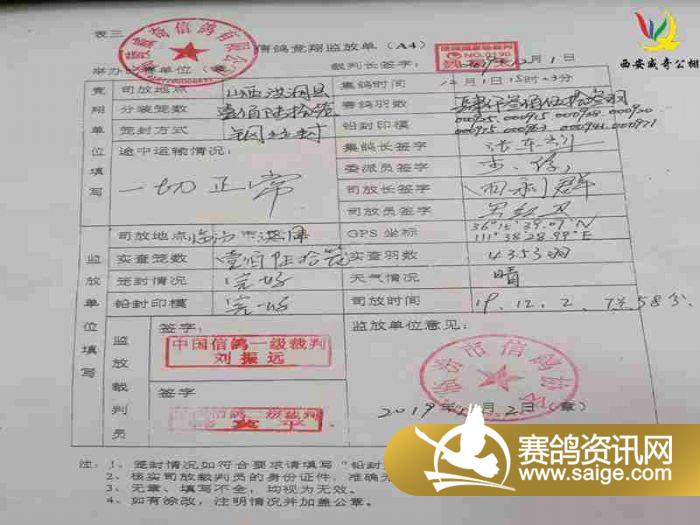 表三
信鸽竞翔监放单（A4）
西安威奇公棚
举办比赛单位（章
裁判长签字：
2019年12月1日
竞翔单位填写
司放地点
山西洪洞县
集鸽时间
12月1日15时23分
分装笼数
壹佰陆拾笼
赛鸽羽数
笼封方式
铅封印模
途中运输情况：
一切正常
集鸽长签字
委派员签字
司放长签字
司放员签字
监放单位填写
司放地点 临汾市洪洞
GPS 坐标
36°15′39.07″N
111°38′28.99″E
实查笼数
壹佰陆拾笼
实查羽数
4353羽
笼封情况
完好
天气情况
晴
铅封印模
完好
司放时间
19.12.2. 7点58分
监放裁判员
签字：
中国信鸽一级裁判
刘振远
签字
国信鸽一级裁判
监放单位意见：
临汾市信鸽协会
2019年12月2日（章）
注：1、笼封情况如符合要求请填写“铅封
2、核实司放裁判员的身份证件，准确无
3、无章、填写不全，均视为无效。
4、如有涂改，注明情况并加盖公章。
赛鸽资讯网
www.saige.com